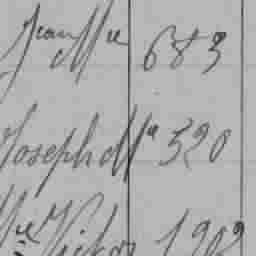 Jean Mie 683
Joseph Ma 520
Mie Victor 1202